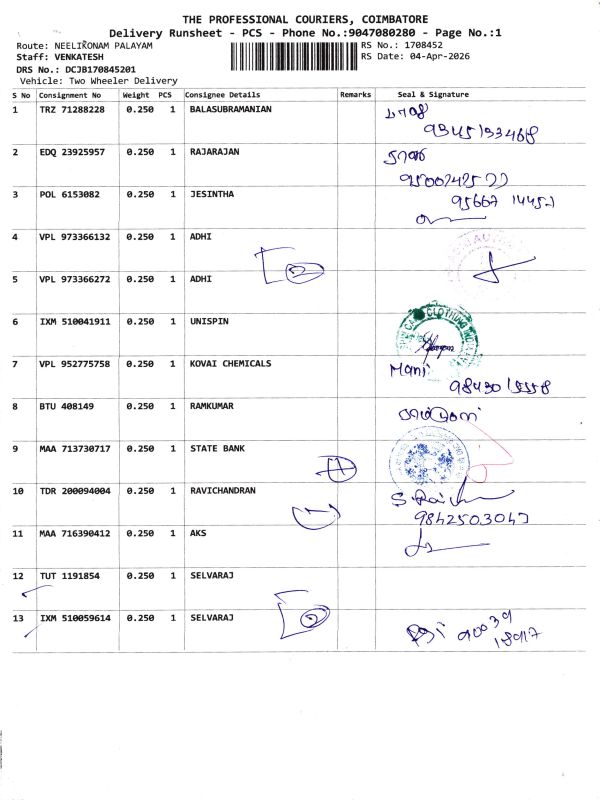 THE PROFESSIONAL COURIERS, COIMBATORE
Delivery Runsheet - PCS - Phone No.:9047080280 - Page No.:1
Route: NEELIKONAM PALAYAM
RS No.: 1708452
Staff: VENKATESH
RS Date: 04-Apr-2026
DRS No.: DCJB170845201
Vehicle: Two Wheeler Delivery
S No Consignment No Weight PCS Consignee Details Remarks Seal & Signature
1 TRZ 71288228 0.250 1 BALASUBRAMANIAN
9345133468
2 EDQ 23925957 0.250 1 RAJARAJAN
3 POL 6153082 0.250 1 JESINTHA
95667 14451
4 VPL 973366132 0.250 1 ADHI
2
5 VPL 973366272 0.250 1 ADHI
6 IXM 510041911 0.250 1 UNISPIN
CLOTHING
7 VPL 952775758 0.250 1 KOVAI CHEMICALS Mani
8 BTU 408149 0.250 1 RAMKUMAR
9 MAA 713730717 0.250 1 STATE BANK
10 TDR 200094004 0.250 1 RAVICHANDRAN
9842503047
11 MAA 716390412 0.250 1 AKS
12 TUT 1191854 0.250 1 SELVARAJ
2
13 IXM 510059614 0.250 1 SELVARAJ
90039
18917